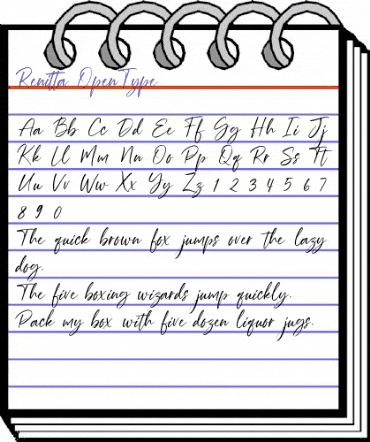 Renitta OpenType
Aa Bb Cc Dd Ee Ff Gg Hh Ii Jj
Kk Ll Mm Nn Oo Pp Qq Rr Ss Tt
Uu Vv Ww Xx Yy Zz 1 2 3 4 5 6 7
8 9 0
The quick brown fox jumps over the lazy
dog.
The five boxing wizards jump quickly.
Pack my box with five dozen liquor jugs.